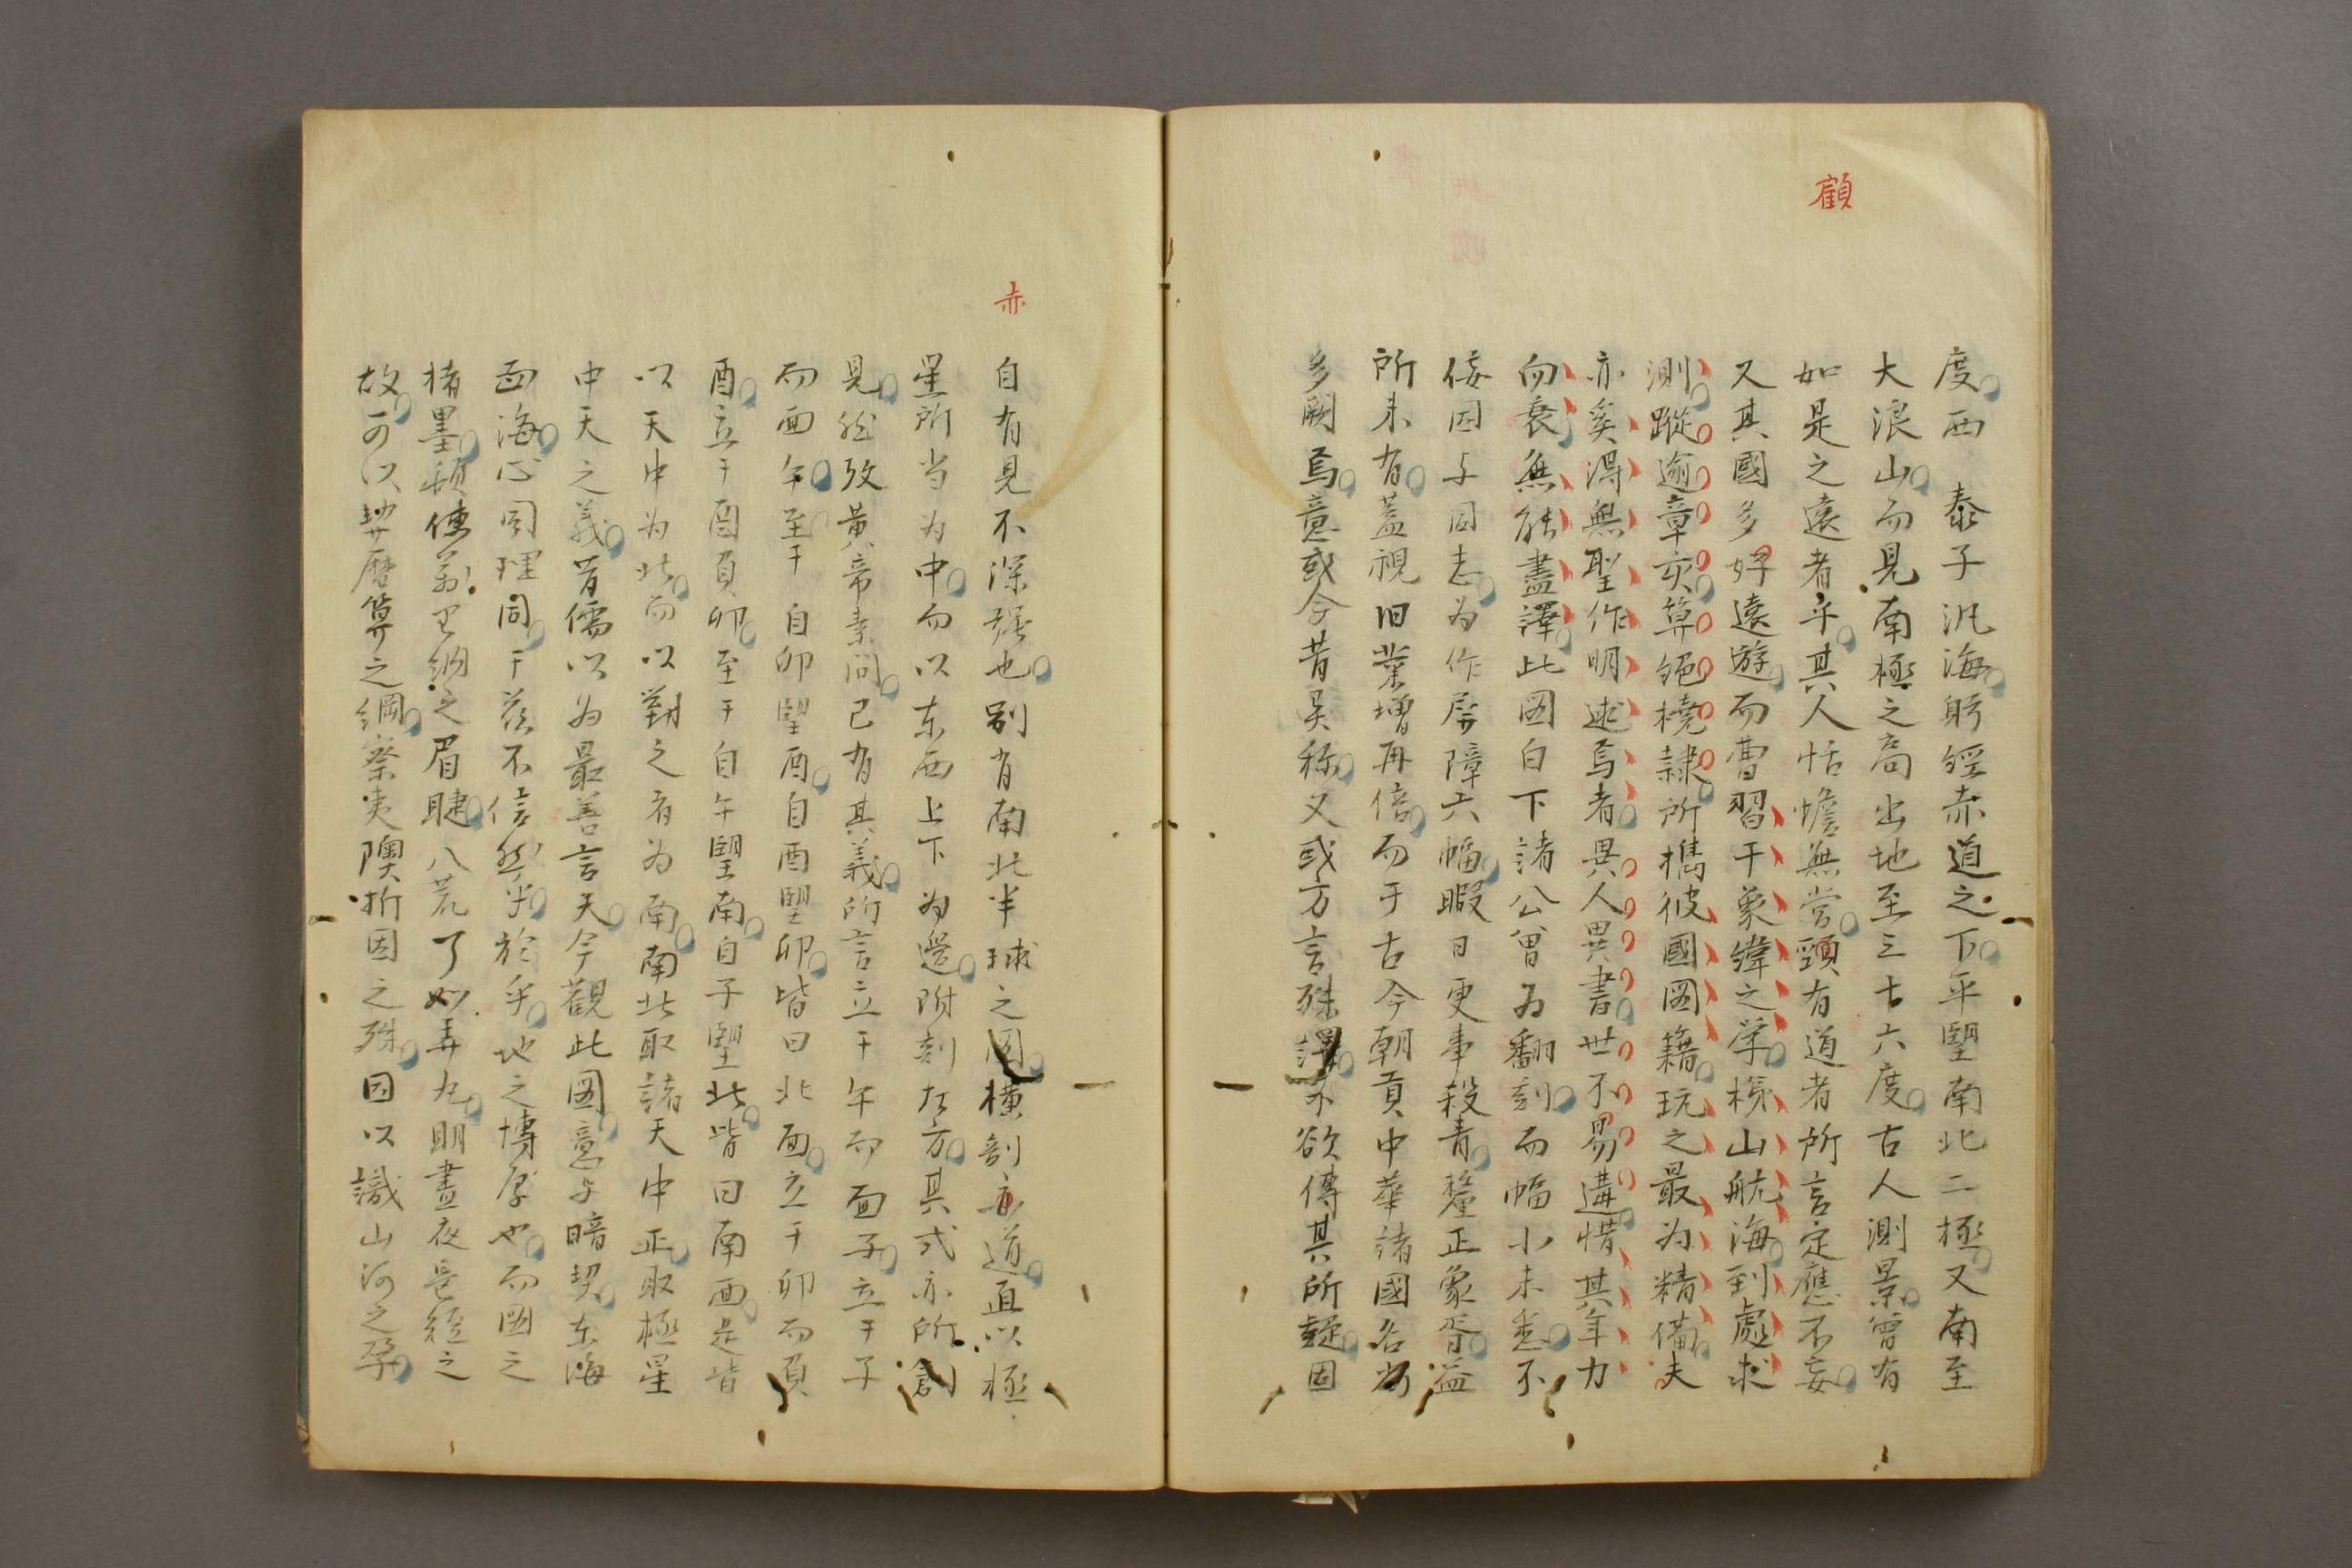 顧
度西 泰子汎海躬經赤道之下平朢南北二極又南至
大浪山而見南極之高出地至三十六度古人測景曾有
如是之遠者乎其人恬憺無營頸有道者所言定應不妄
又其國多好遠遊而曹習于象緯之学梯山航海到處求
測蹤逾章亥算絕橈隷所携彼國圖籍玩之最为精備夫
亦奚得無聖作明述焉者異人異書世不易遘惜其年力
向衰無能盡譯此図白下諸公曾为翻刻而幅小未悉不
佞因与同志为作屏障六幅暇日更事殺青釐正象胥益
所未有蓋視旧業增再倍而于古今朝貢中華諸國名尚
多闕焉意或今昔異称又或方言殊譯不欲傳其所疑固
赤
自有見不深強也別有南北半球之圖横剖赤道直以極
星所当为中而以东西上下为邊附刻左方其式亦所創
見然攷黃帝素問已有其義所言立于午而面子立于子
而面午至于自卯朢酉自酉朢卯皆曰北面立于卯而負
酉立于酉負卯至于自午朢南自子朢北皆曰南面是皆
以天中为北而以對之者为南南北取諸天中正取極星
中天之義昔儒以为最善言天今觀此圖意与暗契东海
西海心同理同于茲不信然乎於乎地之博厚也而図之
楮墨頓使萬里納之眉睫八荒了如弄丸明晝夜長短之
故可以挈暦算之綱察夷隩析因之殊因以識山河之孕